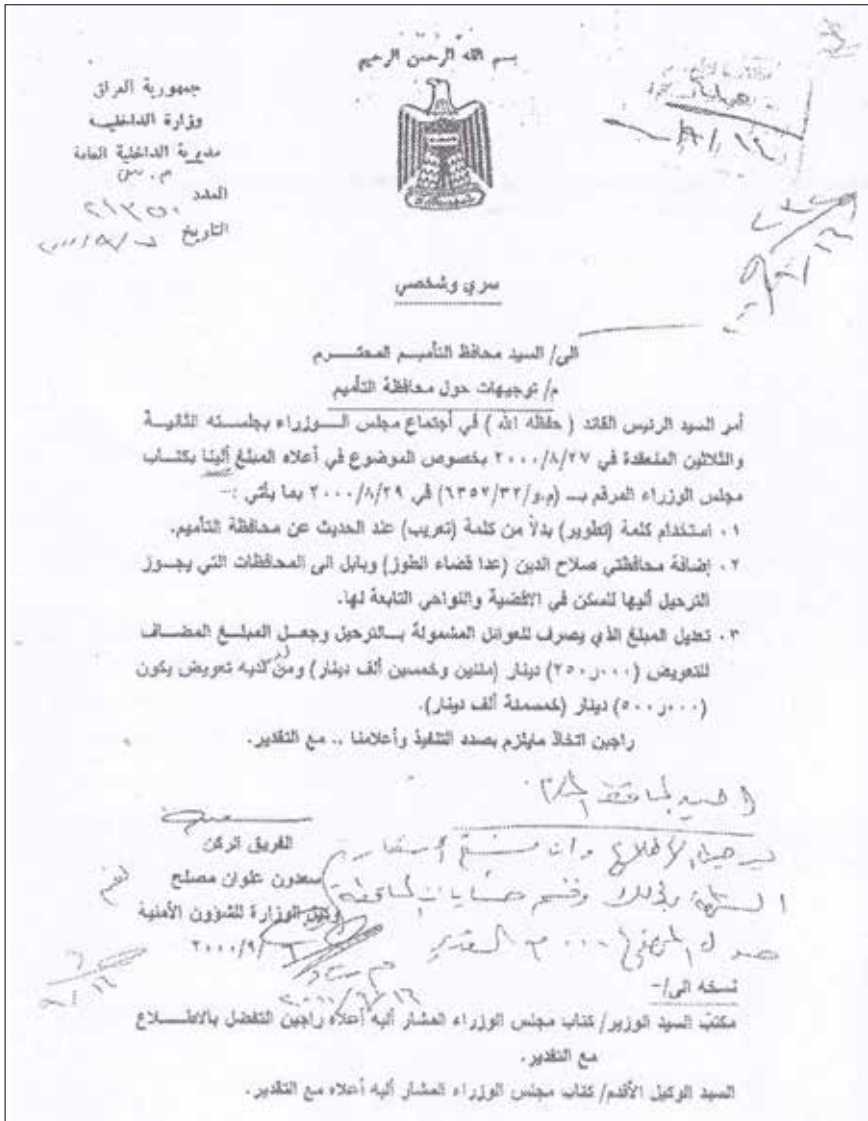 بسم الله الرحمن الرحيم
جمهورية العراق
وزارة الداخلية
مديرية الداخلية العامة
العدد
التاريخ
سري وشخصي
الى/ السيد محافظ التأميم المحترم
م/ توجيهات حول محافظة التأميم
أمر السيد الرئيس القائد ( حفظه الله ) في أجتماع مجلس الوزراء بجلسته الثانية
والثلاثين المنعقدة في ٢٠٠٠/٨/٢٧ بخصوص الموضوع في أعلاه المبلغ ألينا بكتاب
مجلس الوزراء المرقم بـ (م.و/٦٣٥٢/٣٢) في ٢٠٠٠/٨/٢٩ بما يأتي :-
١. استخدام كلمة (تطوير) بدلاً من كلمة (تعريب) عند الحديث عن محافظة التأميم.
٢. إضافة محافظتي صلاح الدين (عدا قضاء الطوز) وبابل الى المحافظات التي يجوز
الترحيل أليها للسكن في الاقضية والنواحي التابعة لها.
٣. تعديل المبلغ الذي يصرف للعوائل المشمولة بالترحيل وجعل المبلغ المضاف
للتعويض (٢٥٠,٠٠٠) دينار (مئتين وخمسين ألف دينار) ومن لديه تعويض يكون
(٥٠٠,٠٠٠) دينار (خمسمئة ألف دينار).
راجين اتخاذ مايلزم بصدد التنفيذ وأعلامنا .. مع التقدير.
السيد المحافظ المحترم
الفريق الركن
سعدون علوان مصلح
وكيل الوزارة للشؤون الأمنية
٢٠٠٠/٩/
نسخه الى/-
مكتب السيد الوزير/ كتاب مجلس الوزراء المشار أليه أعلاه راجين التفضل بالاطلاع
مع التقدير.
السيد الوكيل الأقدم/ كتاب مجلس الوزراء المشار أليه أعلاه مع التقدير.